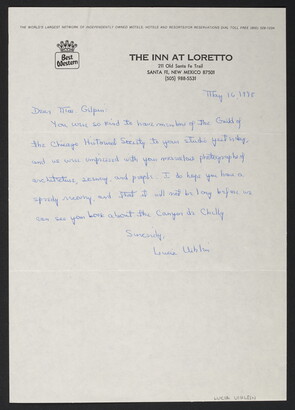 THE WORLD'S LARGEST NETWORK OF INDEPENDENTLY OWNED MOTELS, HOTELS AND RESORTS/FOR RESERVATIONS DIAL TOLL FREE (800) 528-1234
Best
Western
THE INN AT LORETTO
211 Old Santa Fe Trail
SANTA FE, NEW MEXICO 87501
(505) 988-5531
May 16, 1978
Dear Miss Gilpin:
You were so kind to have members of the Guild of
the Chicago Historical Society to your studio yesterday,
and we were impressed with your marvelous photographs of
architecture, scenery, and people. I do hope you have a
speedy recovery, and that it will not be long before we
can see your book about the Canyon de Chelly.
Sincerely,
Louise